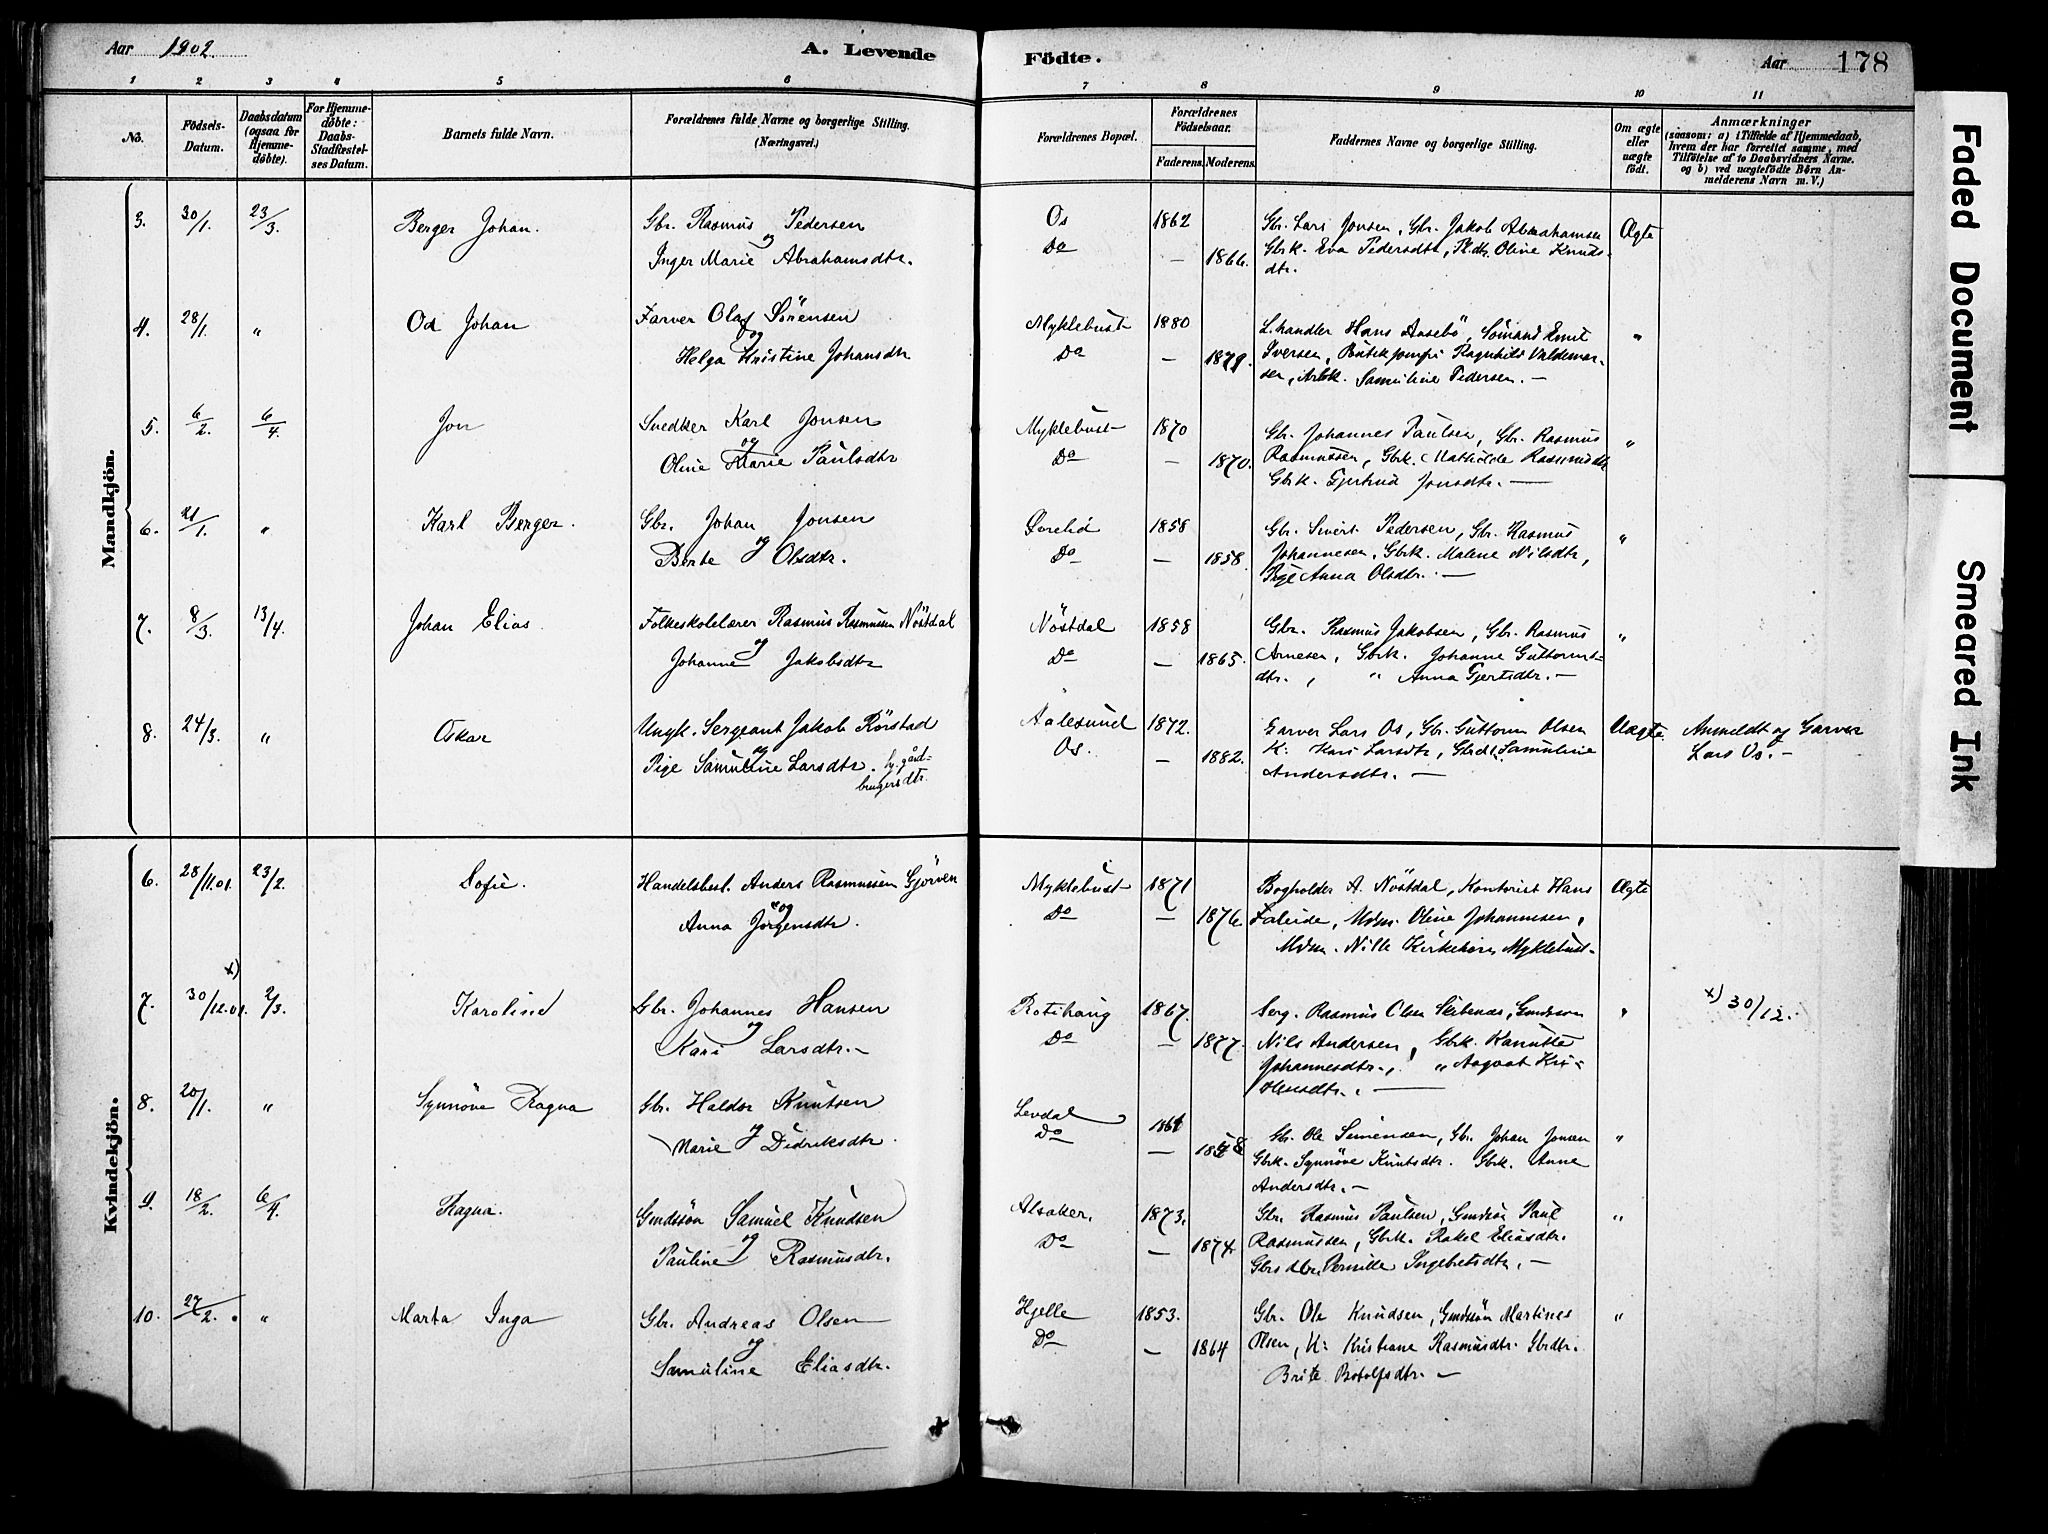 Aar 1902.
A. Levende
Födte.
Aar
178
1 2 3 4 5 6 7 8 9 10 11
No.
Födsels-
Datum.
Daabsdatum
(ogsaa for
Hjemme-
döbte).
For Hjemme-
döbte:
Daabs-
Stadfæstel-
ses Datum.
Barnets fulde Navn.
Forældrenes fulde Navne og borgerlige Stilling.
(Næringsvei.)
Forældrenes Bopæl.
Forældrenes
Födselsaar.
Faderens.
Moderens.
Faddernes Navne og borgerlige Stilling.
Om ægte
eller
uægte
födt.
Anmærkninger
(saasom: a) i Tilfælde af Hjemmedaab,
hvem der har forrettet samme, med
Tilföielse af to Daabsvidners Navne.
og b) ved uægtefödte Börn An-
melderens Navn m. V.)
Mandkjön.
3. 30/1. 23/3. Berger Johan. Gbr. Rasmus Pedersen
og
Inger Marie Abrahamsdtr.
Os 1862
Do — 1866.
Gbr. Lars Jonsen, Gbr. Jakob Abrahamsen
Gbrk. Eva Pedersdtr, Pl.dtr. Oline Knuds-
dtr.
Ægte
4. 28/1. " Od Johan Farver Olaf Sörensen
og
Helga Kristine Johansdtr
Myklebust 1880
Do — 1879.
L.handler Hans Aasebö, Sömand Emil
Iversen, Butikjomfr. Ragnhild Valdemar-
sen, Arbk. Samuline Pedersen. —
"
5. 6/2. 6/4. Jon Snedker Karl Jonsen
og
Oline Marie Paulsdtr
Myklebust 1870
Do — 1870.
Gbr. Johannes Paulsen, Gbr. Rasmus
Rasmussen, Gbrk. Mathilde Rasmusdtr
Gbrk. Gjertrud Jonsdtr. —
"
6. 21/1. " Karl Berger. Gbr. Johan Jonsen
og
Berte Olsdtr.
Övrelid 1858
Do — 1858.
Gbr. Sivert Pedersen, Gbr. Rasmus
Johannesen, Gbrk. Malene Nilsdtr,
Pige Anna Olsdtr. —
"
7. 8/3. 13/4. Johan Elias. Folkeskolelærer Rasmus Rasmussen Nöstdal
og
Johanne Jakobsdtr
Nöstdal 1858
Do — 1865.
Gbr. Rasmus Jakobsen, Gbr. Rasmus
Arnesen, Gbrk. Johanne Guttorms-
dtr., " Anna Gjertsdtr. —
"
8. 24/3. " Oskar Ungk. Sergeant Jakob Rörstad
og
Pige Samuline Larsdtr. gård-
brugersdtr.
Aalesund 1872.
Os. — 1882.
Garver Lars Os, Gbr. Guttorm Olsen
K: Kari Larsdtr, Gbrdt. Samuline
Andersdtr. —
Uægte.
Anmeldt af Garver
Lars Os. —
Kvindekjön.
6. 28/11.01. 23/2. Sofie. Handelsbest. Anders Rasmussen Gjörven
og
Anna Jörgensdtr.
Myklebust 1871
Do — 1876.
Bogholder A. Nöstdal, Kontorist Hans
Faleide, Mdm. Oline Johannesen,
Mdm. Nille Kirkehorn Myklebust.
Ægte
x)
7. 30/12.01. 2/3. Karoline Gbr. Johannes Hansen
og
Kari Larsdtr. —
Rotihaug 1867.
Do — 1877.
Serg. Rasmus Olsen Skibenes, Gmdssön
Nils Andersen, Gbrk. Kanutte
Johannesdtr., " Aagaat Kri-
stensdtr. —
"
x) 30/12.
8. 20/1. " Synnöve Ragna Gbr. Haldor Knutsen
og
Marie Didriksdtr.
Levdal
Do —
Gbr. Ole Simensen, Gbr. Johan Jonsen
Gbrk. Synnöve Knutsdtr. Gbrk. Anne
Andersdtr. —
"
9. 18/2. 6/4. Ragna. Gmdssön Samuel Knudsen
og
Pauline Rasmusdtr.
Alsaker. 1873.
Do — 1874.
Gbr. Rasmus Paulsen, Gmdssön Paul
Rasmussen, Gbrk. Rakel Eliasdtr.
Gbrsdtr. Pernille Ingebretsdtr. —
"
10. 27/2. " Marta Inga Gbr. Andreas Olsen
og
Samuline Eliasdtr.
Hjelle 1853.
Do — 1864
Gbr. Ole Knudsen, Gmdssön Martines
Olsen, K: Kristiane Rasmusdtr. Gbrdtr.
Brite Botolfsdtr. —
"
Faded Document
Smeared Ink